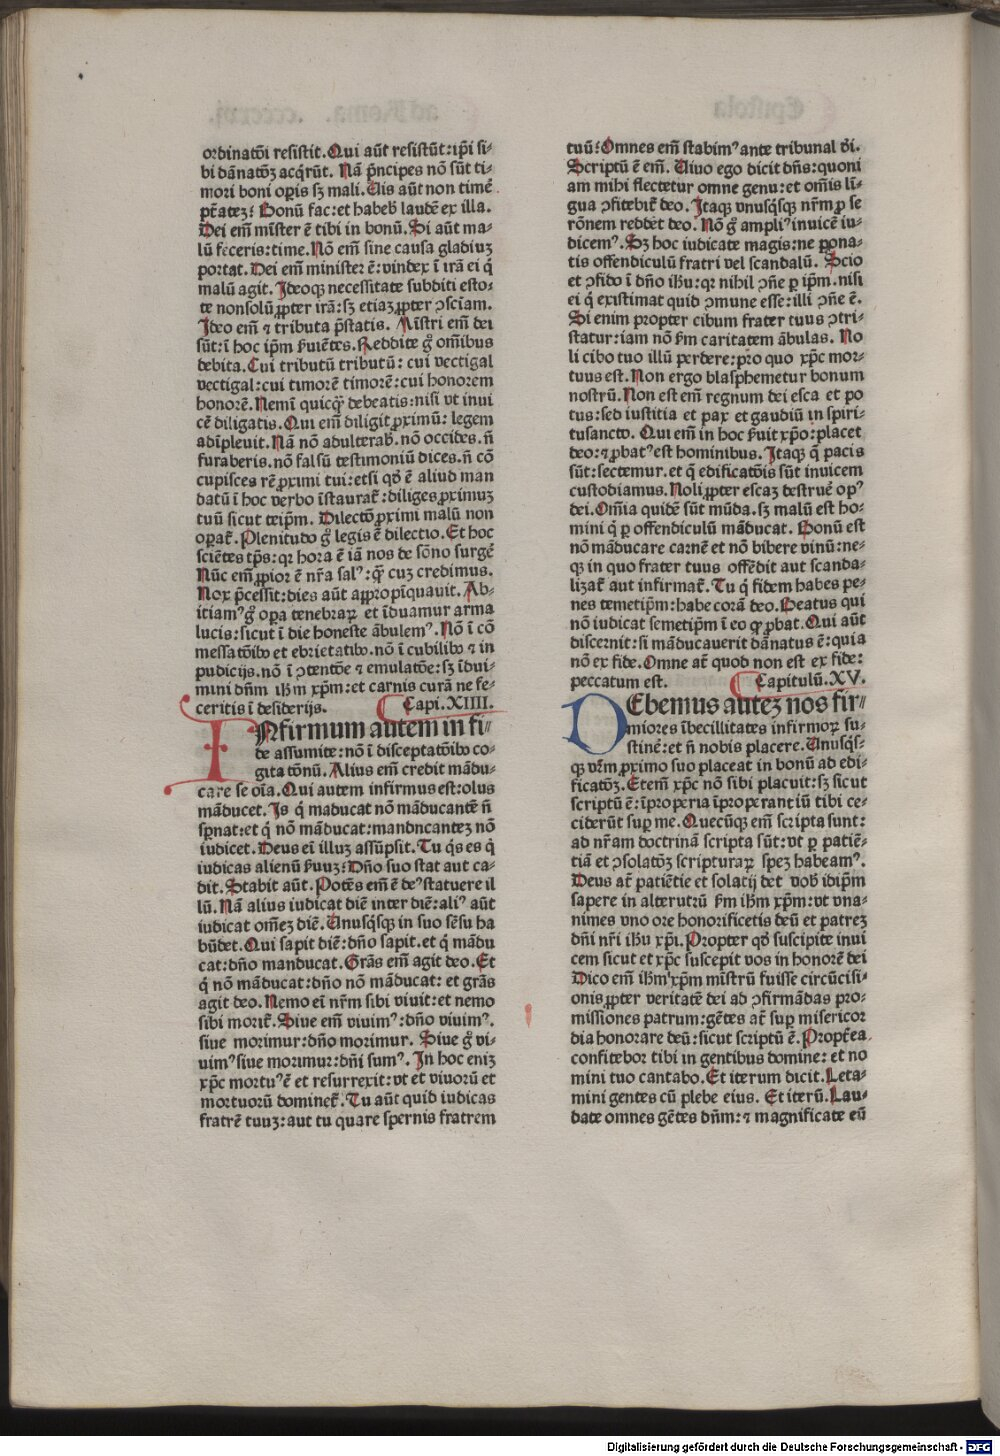 ordinatōi resistit. Qui aūt resistūt: ip̄i si-
bi dānatōꝫ acq̄rūt. Nā p̄ncipes nō sūt ti-
mori boni oꝑis sꝫ mali. Uis aūt non timē
pt̄atez? Bonū fac: et habeb̄ laudē ex illa.
Dei em̄ mīster ē tibi in bonū. Si aūt ma-
lū feceris: time. Nō em̄ sine causa gladiuz
portat. Dei em̄ minister ē: vindex ī irā ei q̄
malū agit. Ideoqꝫ necessitate subditi esto-
te nonsolū ꝓpter irā: sꝫ etiaz ꝓpter ꝯsciam.
Ideo em̄ ⁊ tributa p̄statis. Mīstri em̄ dei
sūt: ī hoc ip̄m ẜuiētes. Reddite gͦ om̄ibus
debita. Cui tributū tributū: cui vectigal
vectigal: cui timorē timorē: cui honorem
honorē. Nemī quicq̄ꝫ debeatis: nisi vt inui
cē diligatis. Qui em̄ diligit ꝓximū: legem
adīpleuit. Nā nō adulterab̄. nō occides. n̄
furaberis. nō falsū testimoniū dices. n̄ cō
cupisces rē ꝓximi tui: et si qd̄ ē aliud man
datū ī hoc verbo īstaurat̄: diliges ꝓximuz
tuū sicut teip̄m. Dilectō ꝓximi malū non
oꝑat̄. Plenitudo gͦ legis ē dilectio. Et hoc
sciētes tp̄s: qꝛ hora ē iā nos de sōno surgē
Nūc em̄ ꝓpior ē nr̄a salꝰ: q̄ꝫ cuz credimus.
Nox p̄cessit: dies aūt appropīquauit. Ab-
itiamꝰ gͦ oꝑa tenebraꝝ et īduamur arma
lucis: sicut ī die honeste ābulemꝰ. Nō ī cō
messatōibꝰ et ebrietatibꝰ. nō ī cubilibꝰ ⁊ in
pudicijs. nō ī ꝯtentōe ⁊ emulatōe: sꝫ īdui-
mini dn̄m ihm̄ xp̄m: et carnis curā ne fe-
ceritis ī desiderijs. Capi. XIIII.
INfirmum autem in fi-
de assumite: nō ī disceptatōibꝰ co-
gitatōnū. Alius em̄ credit mādu-
care se oīa. Qui autem infirmus est: olus
māducet. Is q̄ maducat nō māducantē n̄
sꝑnat: et q̄ nō māducat: mandncantez nō
iudicet. Deus eī illuz assūpsit. Tu q̄s es q̄
iudicas alienū ẜuuz? Dn̄o suo stat aut ca-
dit. Stabit aūt. Potēs em̄ ē deꝰ statuere il
lū. Nā alius iudicat diē inter diē: aliꝰ aūt
iudicat om̄ez diē. Unusq̄sqꝫ in suo sēsu ha
būdet. Qui sapit diē: dn̄o sapit. et q̄ mādu
cat: dn̄o manducat. Grās em̄ agit deo. Et
q̄ nō māducat: dn̄o nō māducat: et grās
agit deo. Nemo eī nr̄m sibi viuit: et nemo
sibi morit̄. Siue em̄ viuimꝰ: dn̄o viuimꝰ.
siue morimur: dn̄o morimur. Siue gͦ vi-
uimꝰ siue morimur: dn̄i sumꝰ. In hoc eniz
xp̄c mortuꝰ ē et resurrexit: vt et viuorū et
mortuorū dominet̄. Tu aūt quid iudicas
fratrē tuuz: aut tu quare spernis fratrem
tuū? Omnes em̄ stabimꝰ ante tribunal dī.
Scriptū ē em̄. Uiuo ego dicit dn̄s: quoni
am mihi flectetur omne genu: et om̄is lī-
gua ꝯfitebit̄ deo. Itaqꝫ vnusq̄sqꝫ nr̄m ꝓ se
rōnem reddet deo. Nō gͦ ampliꝰ inuicē iu-
dicemꝰ. Sꝫ hoc iudicate magis: ne ponа-
tis offendiculū fratri vel scandalū. Scio
et ꝯfido ī dn̄o ihu: qꝛ nihil ꝯn̄e ꝑ ip̄m. nisi
ei q̄ existimat quid ꝯmune esse: illi ꝯn̄e ē.
Si enim propter cibum frater tuus ꝯtri-
statur: iam nō ẜm caritatem ābulas. No
li cibo tuo illū perdere: pro quo xp̄c mor-
tuus est. Non ergo blasphemetur bonum
nostrū. Non est em̄ regnum dei esca et po
tus: sed iustitia et pax et gaudiū in spiri-
tusancto. Qui em̄ in hoc ẜuit xp̄o: placet
deo: ⁊ ꝓbatꝰ est hominibus. Itaqꝫ q̄ pacis
sūt: sectemur. et q̄ edificatōis sūt inuicem
custodiamus. Noli ꝓpter escaz destruē opꝰ
dei. Om̄ia quidē sūt mūda. sꝫ malū est ho-
mini q̄ ꝑ offendiculū māducat. Bonū est
nō māducare carnē et nō bibere vinū: ne-
qꝫ in quo frater tuus offēdit aut scanda-
lizat̄ aut infirmat̄. Tu q̄ fidem habes pe-
nes temetip̄m: habe corā deo. Beatus qui
nō iudicat semetip̄m ī eo qd̄ ꝓbat. Qui aūt
discernit: si māducauerit dānatus ē: quia
nō ex fide. Omne at̄ quod non est ex fide:
peccatum est. Capitulū. XV.
DEbemus autez nos fir-
miores ībecillitates infirmoꝝ su-
stinē: et n̄ nobis placere. Unusq̄s-
qꝫ vr̄m ꝓximo suo placeat in bonū ad edi-
ficatōꝫ. Etem̄ xp̄c nō sibi placuit: sꝫ sicut
scriptū ē: īproperia īproperantiū tibi ce-
ciderūt suꝑ me. Quecūqꝫ em̄ scripta sunt:
ad nr̄am doctrinā scripta sūt: vt ꝑ patiē-
tiā et ꝯsolatōꝫ scripturaꝝ spez habeamꝰ.
Deus at̄ patiētie et solatij det vob̄ idip̄m
sapere in alterutrū ẜm ihm̄ xp̄m: vt vna-
nimes vno ore honorificetis deū et patrez
dn̄i nr̄i ihu xp̄i. Propter qd̄ suscipite inui
cem sicut et xp̄c suscepit vos in honorē dei
Dico em̄ ihm̄ xp̄m mīstrū fuisse circūcisi-
onis ꝓpter veritatē dei ad ꝯfirmādas pro-
missiones patrum: gētes at̄ suꝑ misericor
dia honorare deū: sicut scriptū ē. Propt̄ea
confitebor tibi in gentibus domine: et no
mini tuo cantabo. Et iterum dicit. Leta-
mini gentes cū plebe eius. Et iterū. Lau-
date omnes gētes dn̄m: ⁊ magnificate eū
Digitalisierung gefördert durch die Deutsche Forschungsgemeinschaft - DFG